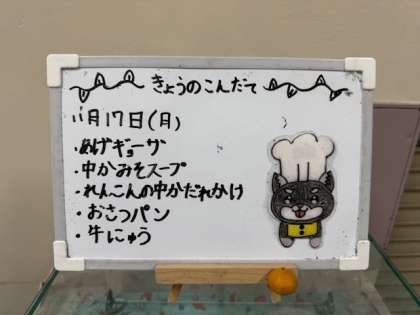 きょうのこんだて
11月17日(月)
・あげギョーザ
・中かみそスープ
・れんこんの中かだれかけ
・おさつパン
・牛にゅう